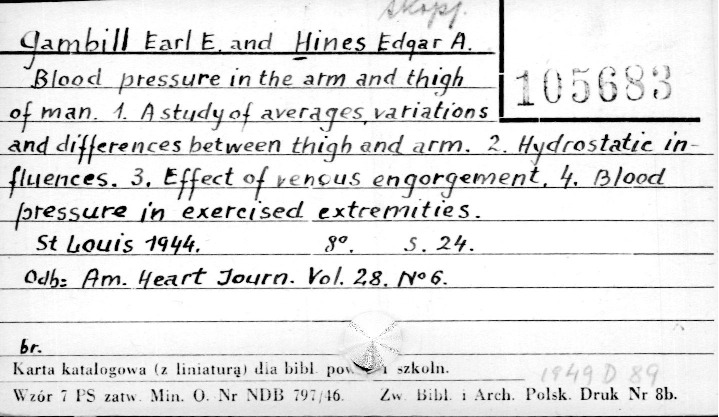 skopj.
Gambill Earl E. and Hines Edgar A.
105683
Blood pressure in the arm and thigh
of man. 1. A study of averages, variations
and differences between thigh and arm. 2. Hydrostatic in-
fluences. 3. Effect of venous engorgement. 4. Blood
pressure in exercised extremities.
St Louis 1944. 8º. S. 24.
Odb: Am. Heart Journ. Vol. 28. Nº 6.
br.
Karta katalogowa (z liniaturą) dla bibl. pow. i szkoln.
1949 D 89
Wzór 7 PS zatw. Min. O. Nr NDB 797/46. Zw. Bibl. i Arch. Polsk. Druk Nr 8b.